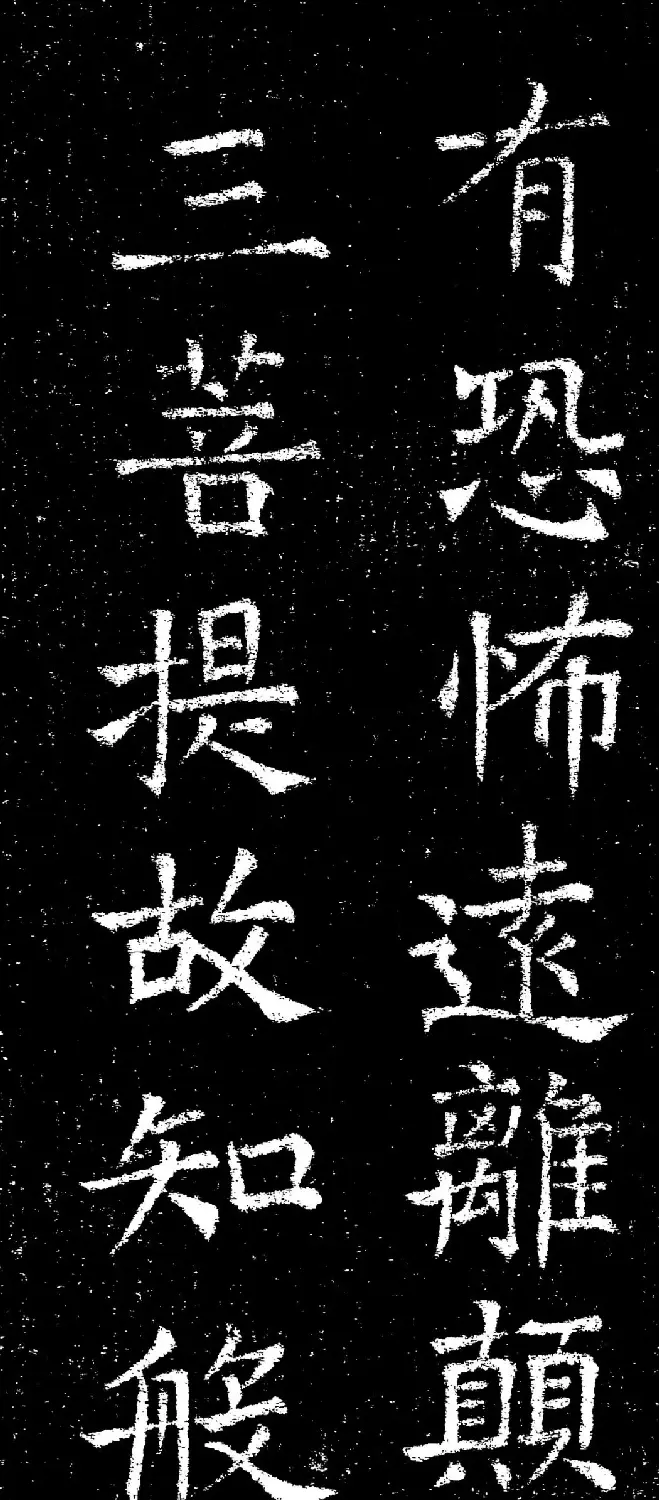 有恐怖遠離顛
三菩提故知般